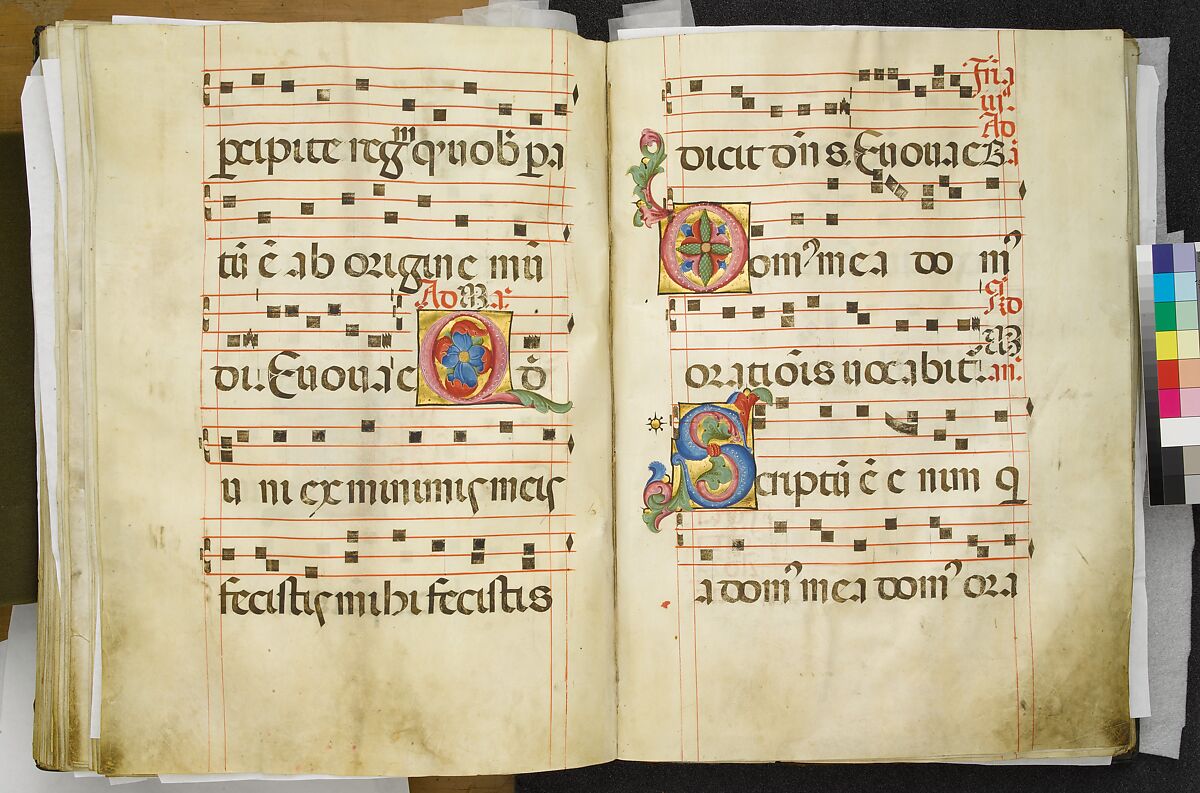 pcipite regnū q' uob pa
tū ē ab origine mū
Ad Ma.
di. Euouae Q d
u ni ex minimis meis
fecistis mihi fecistis
Fria
iii.
Ad
dicit dns. Euouae B a
Dom' mea do m'
Ad
orationis uocabit. M an.
Scriptū ē e nim q
a dom' mea dom' ora